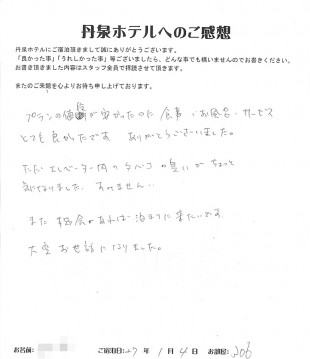 丹泉ホテルへのご感想
丹泉ホテルにご宿泊頂きまして誠にありがとうございます。
「良かった事」「うれしかった事」等ございましたら、どんな事でも構いませんのでお書きください。
お書き頂きました内容はスタッフ全員で拝読させて頂きます。
またのご来館を心よりお待ち申し上げております。
プランの値段が安かったのに 食事・お風呂・サービス
とても良かったです ありがとうございました。
ただ エレベーター内の タバコ の臭いが ちょっと
気になりました。すみません…
また 機会があれば 泊まりに来たいです
大変 お世話になりました。
お名前:
ご宿泊日:27年 1月 4日 お部屋: 206